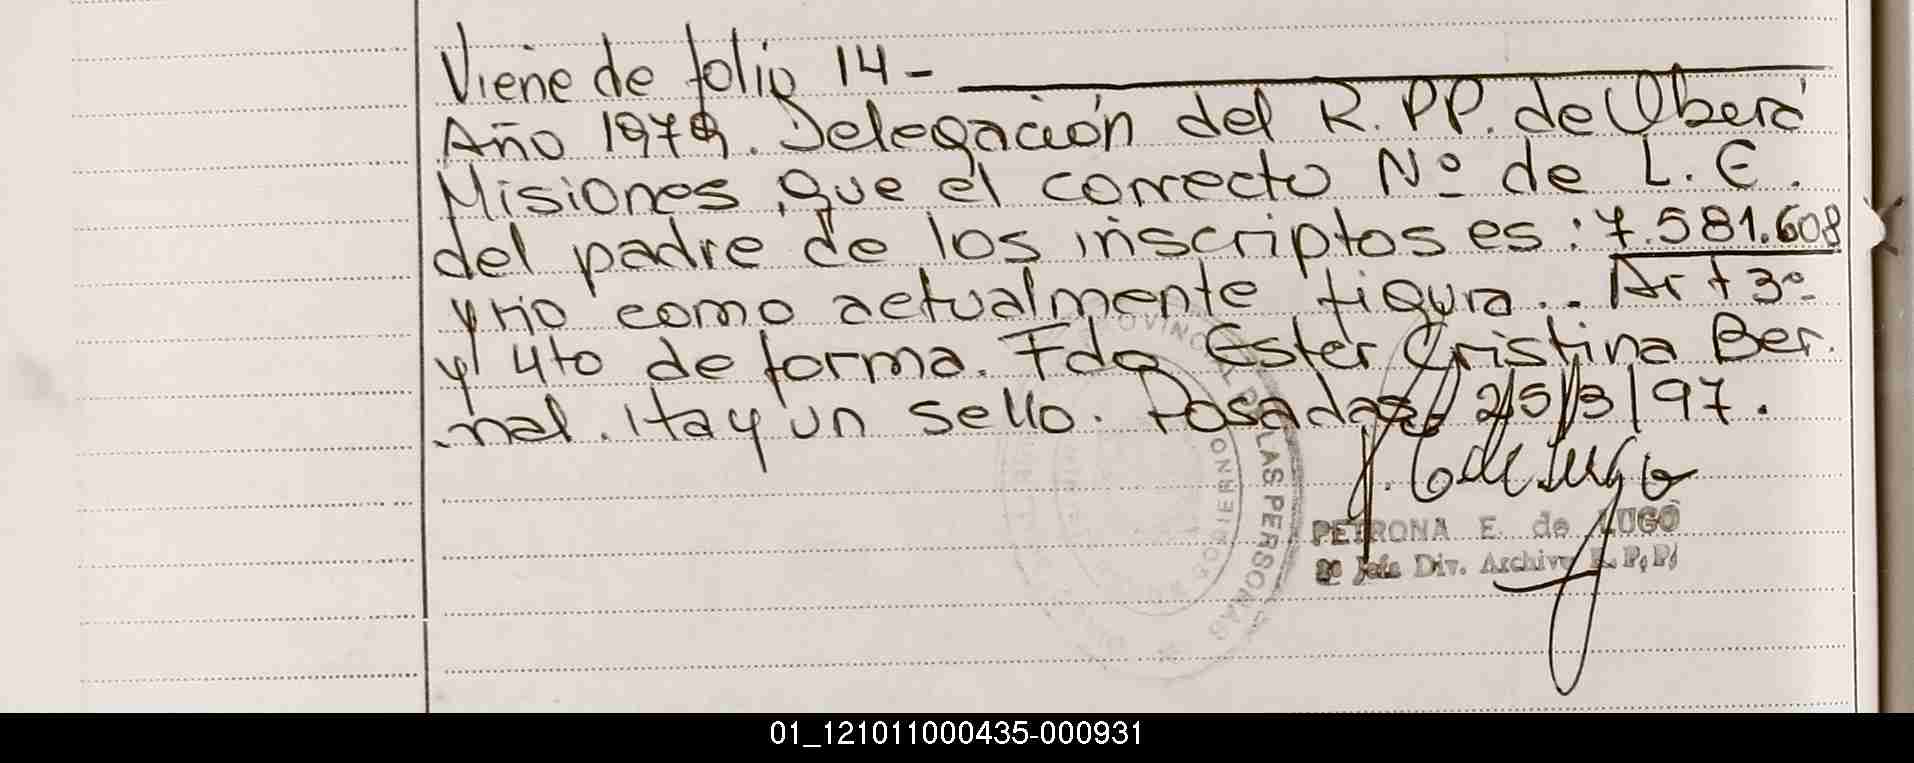 Viene de folio 14 -
Año 1979. Delegación del R.PP. de Oberá
Misiones, que el correcto Nº de L.E.
del padre de los inscriptos es: 7.581.608
y no como actualmente figura.. Art 3º
y 4to de forma. Fdo Ester Cristina Ber.
nal. Hay un sello. Posadas, 25/3/97.
PETRONA E. de LUGO
2º Jefe Div. Archivo R.P.P.
LAS PERSONAS
01_121011000435-000931